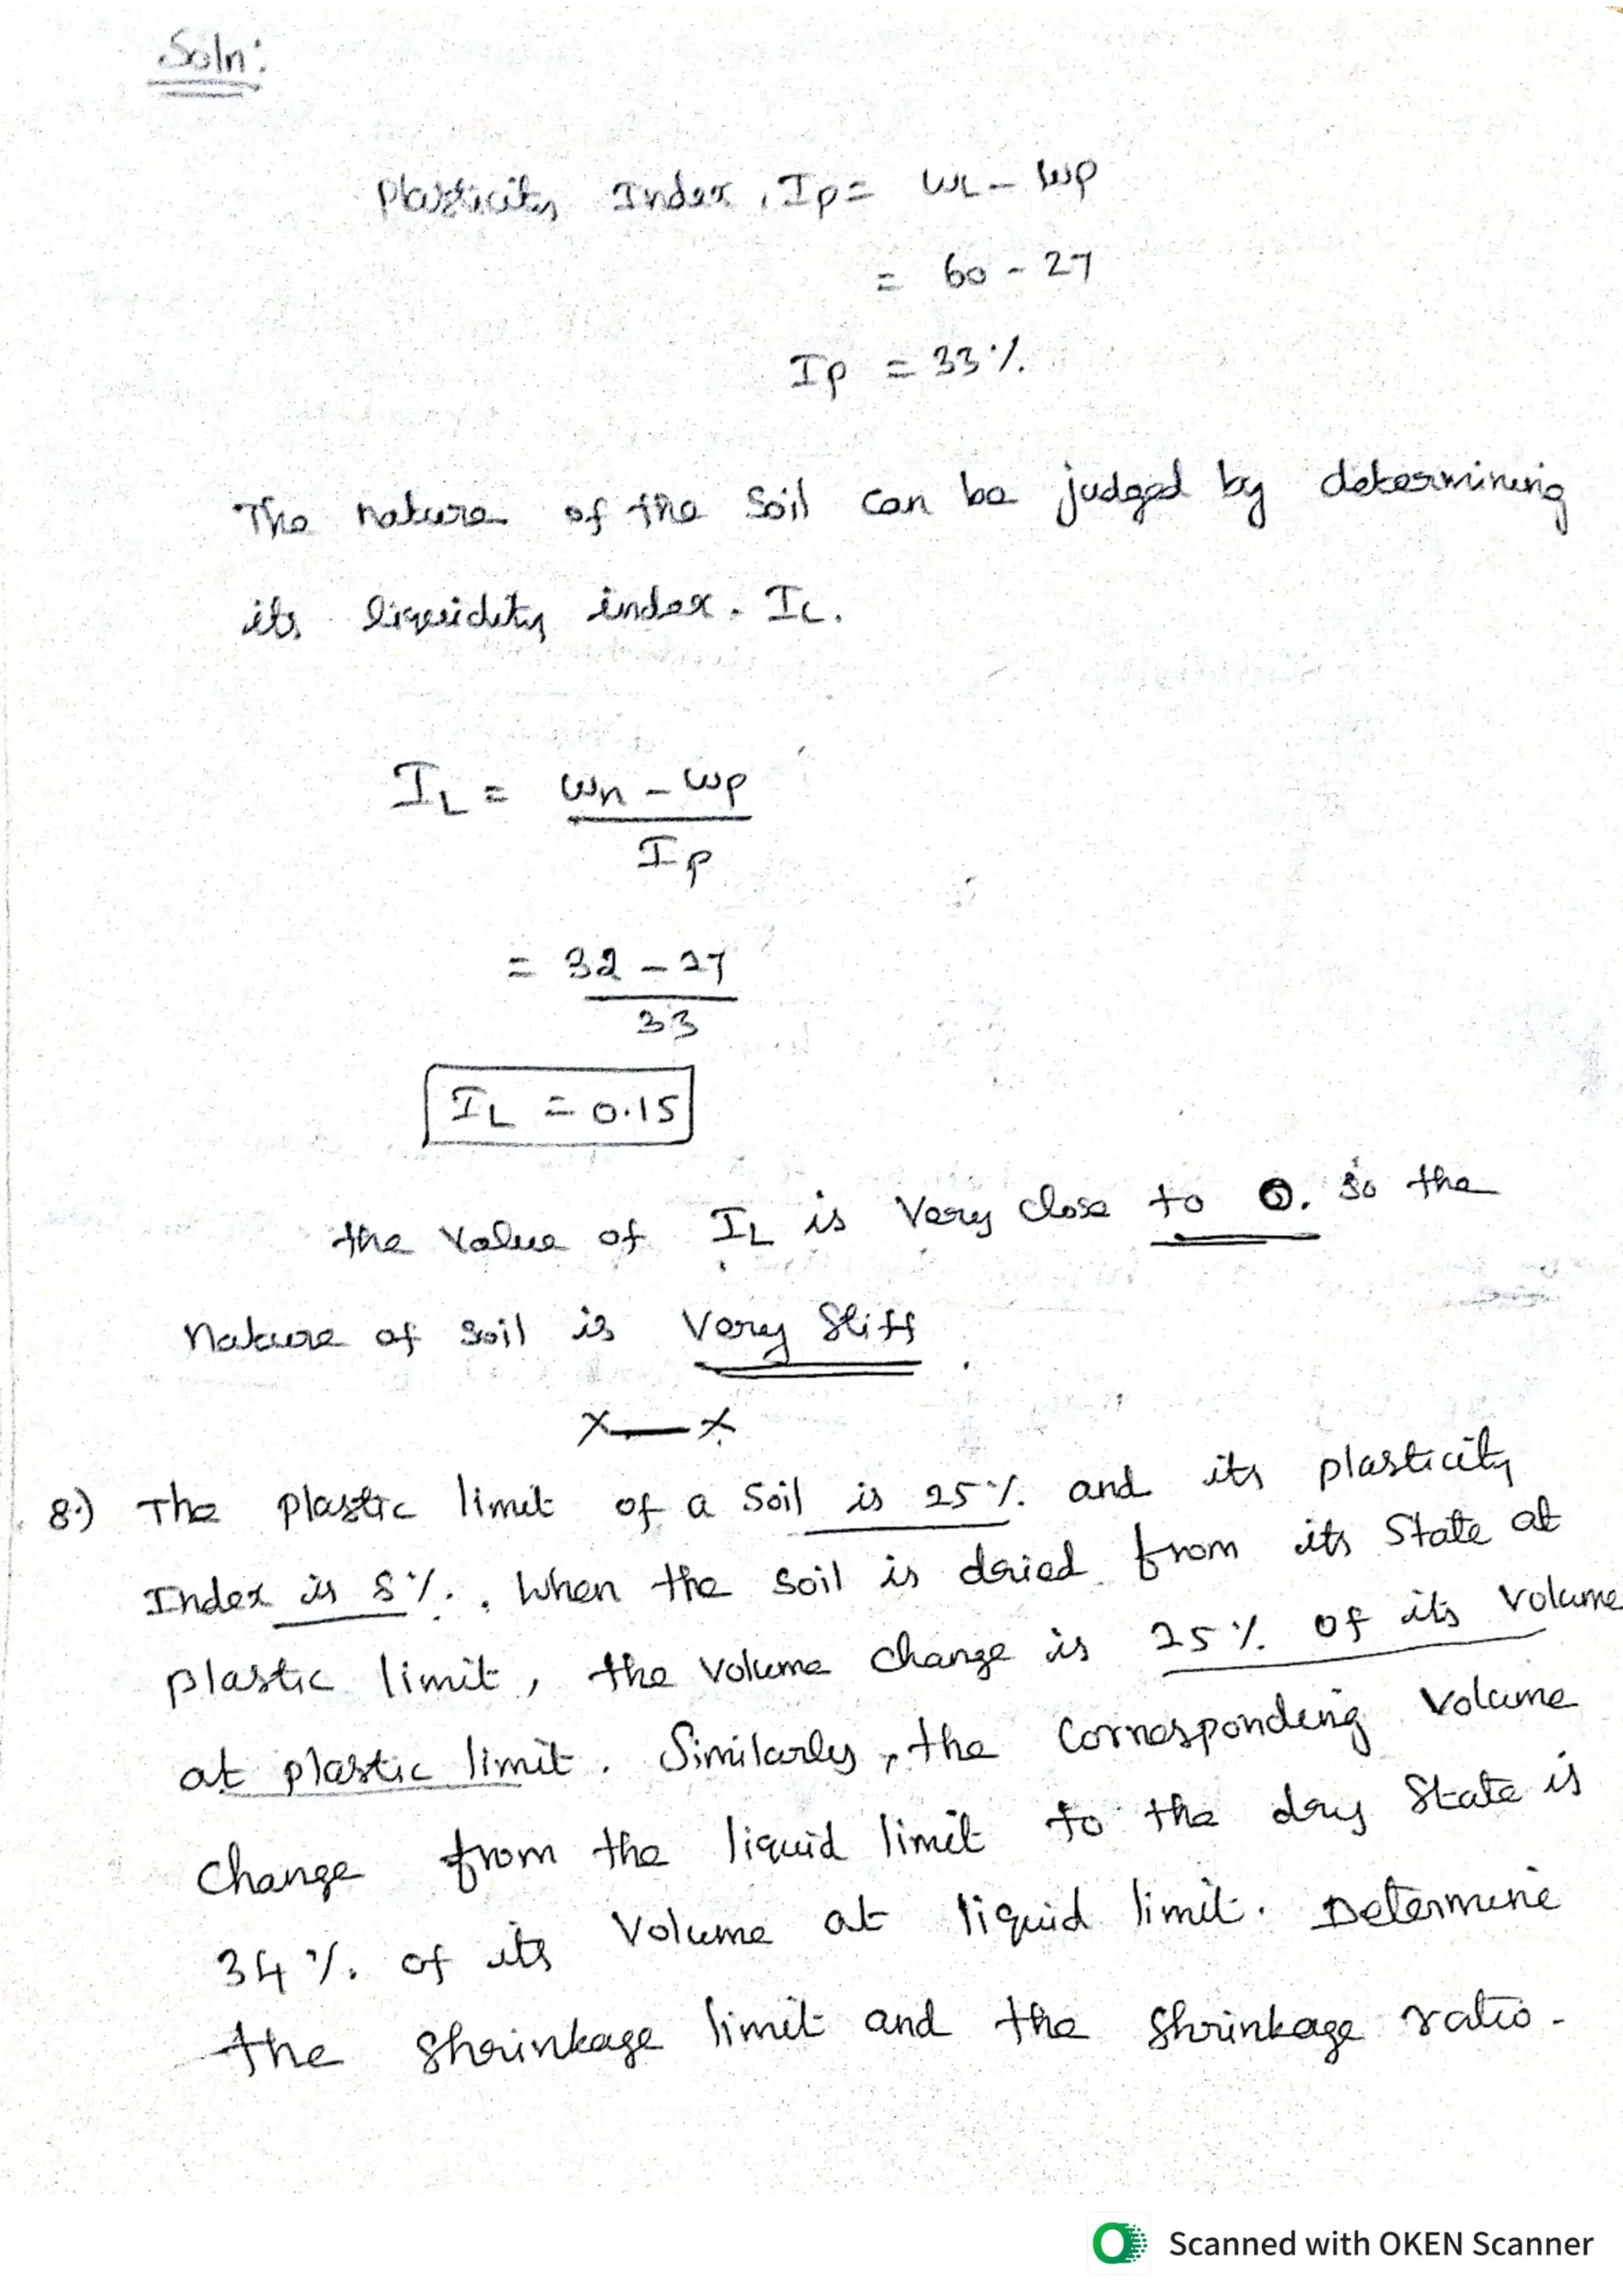 Soln:
Plasticity Index, Ip = WL - Wp
= 60 - 27
Ip = 33%
The nature of the Soil can be judged by determining
its liquidity index. IL.
IL = Wn - Wp
Ip
= 32 - 27
33
IL = 0.15
the Value of IL is Very close to 0. So the
Nature of Soil is Very Stiff.
x—x
8.) The plastic limit of a Soil is 25% and its plasticity
Index is 8%. When the Soil is dried from its State at
plastic limit, the volume change is 25% of its Volume
at plastic limit. Similarly, the Corresponding Volume
Change from the liquid limit to the dry State is
34% of its Volume at liquid limit. Determine
the Shrinkage limit and the Shrinkage ratio.
Scanned with OKEN Scanner